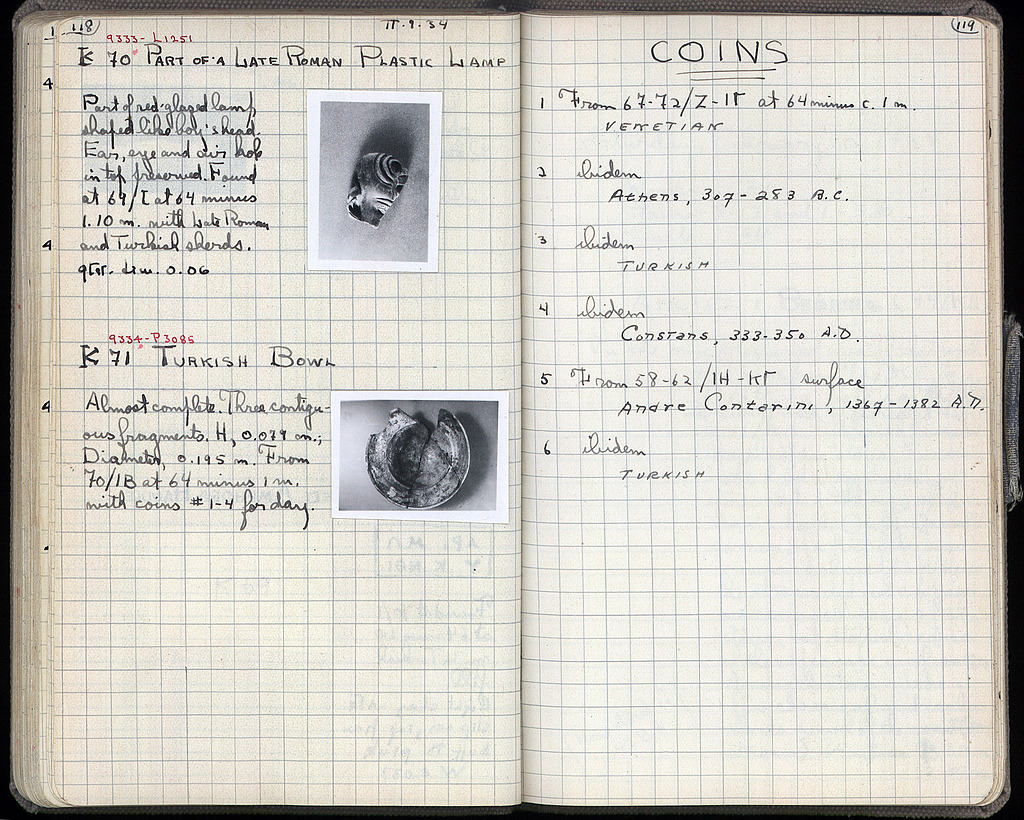 118
II·9·34
9333-L1251
K 70 PART OF A LATE ROMAN PLASTIC LAMP
4
Part of red-glazed lamp,
shaped like boy's head.
Ear, eye and air hole
in top preserved. Found
at 69/Ι at 64 minus
1.10 m. with Late Roman
and Turkish sherds.
4
gtst. dim. 0.06
9334-P3085
K 71 TURKISH BOWL
4
Almost complete. Three contigu-
ous fragments. H, 0.079 m.;
Diameter, 0.195 m. From
70/ΙΒ at 64 minus 1 m.
with coins #1-4 for day.
119
COINS
1 From 67-72/Ζ-ΙΓ at 64 minus c. 1 m.
VENETIAN
2 ibidem
Athens, 307-283 B.C.
3 ibidem
TURKISH
4 ibidem
Constans, 333-350 A.D.
5 From 58-62/ΙΗ-ΚΓ surface
Andre Contarini, 1367-1382 A.D.
6 ibidem
TURKISH